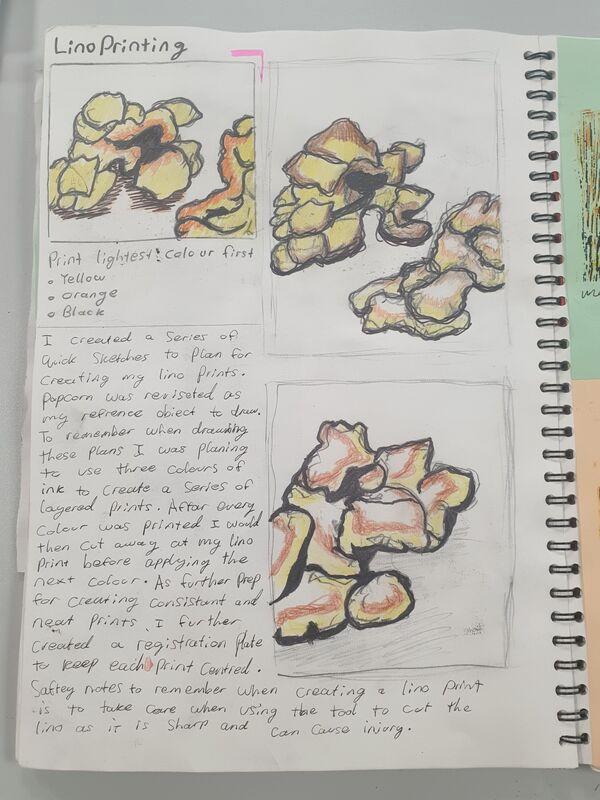 Lino Printing
Print lightest colour first
• Yellow
• Orange
• Black
I created a Series of
Quick Sketches to Plan for
Creating my lino Prints.
Popcorn was reviseted as
my refrence object to draw.
To remember when drawing
these Plans I was Planing
to use three colours of
ink to Create a Series of
layered Prints. After every
Colour was Printed I would
then cut away at my lino
Print before applying the
next colour. As further Prep
for creating Consistant and
neat Prints I further
Created a registration Plate
to keep each Print Centred.
Saftey notes to remember when creating a lino Print
is to take Care when using the tool to cut the
lino as it is Sharp and can cause injury.